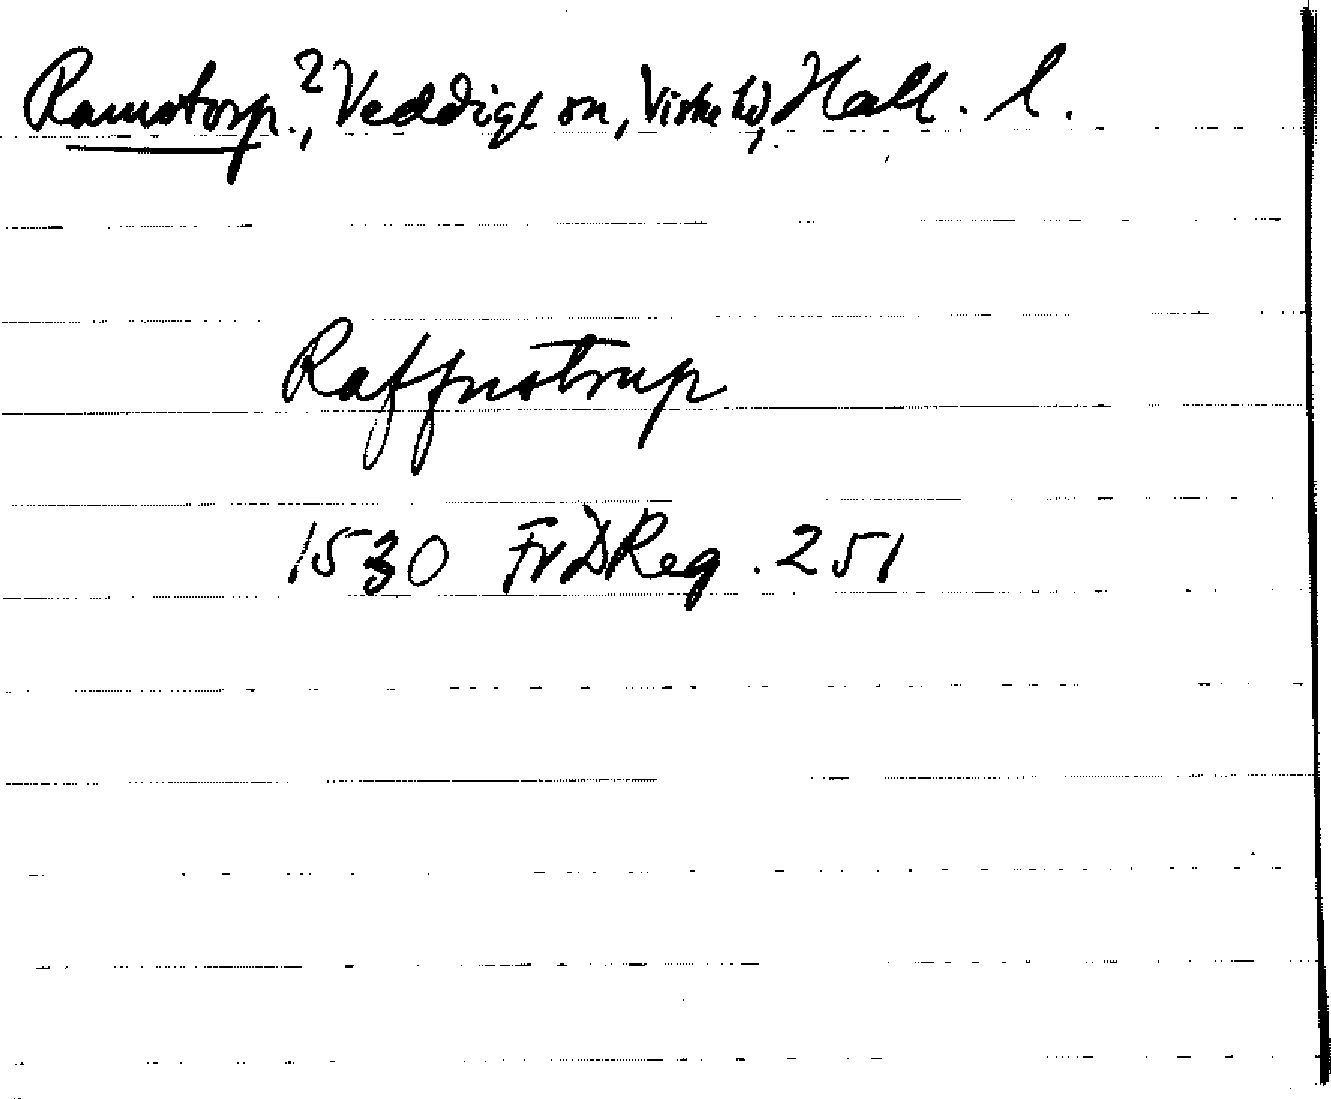 Ramstorp.?, Veddige sn, Viske hd, Hall. l.
Raffnstrup
1530 FrDReg. 251